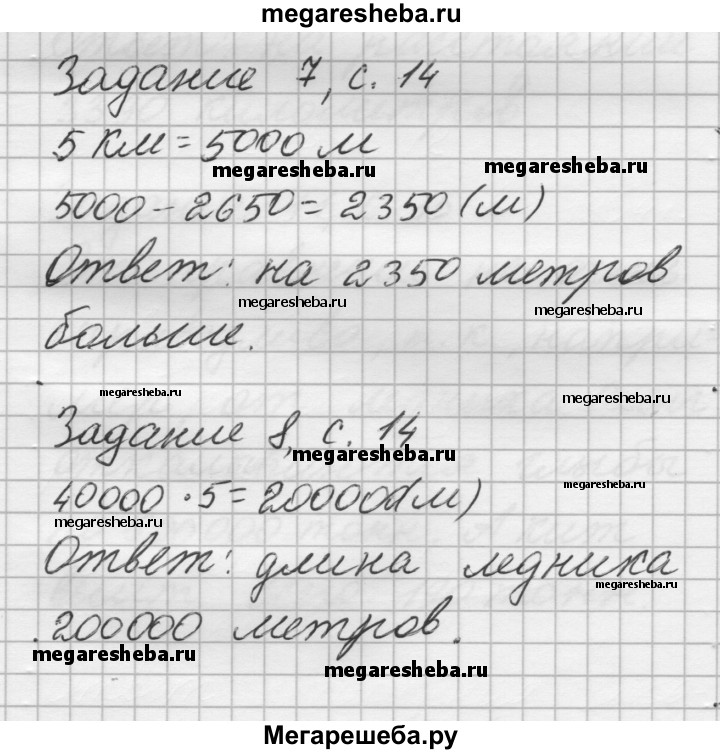 megaresheba.ru
Задание 7, с. 14
5 км = 5000 м
megaresheba.ru megaresheba.ru
5000 - 2650 = 2350 (м)
Ответ: на 2350 метров
megaresheba.ru megaresheba.ru
больше.
megaresheba.ru megaresheba.ru
Задание 8, с. 14
megaresheba.ru
40000 · 5 = 200000 (м)
megaresheba.ru megaresheba.ru
Ответ: длина ледника
megaresheba.ru
200000 метров.
megaresheba.ru megaresheba.ru
Мегарешеба.ру